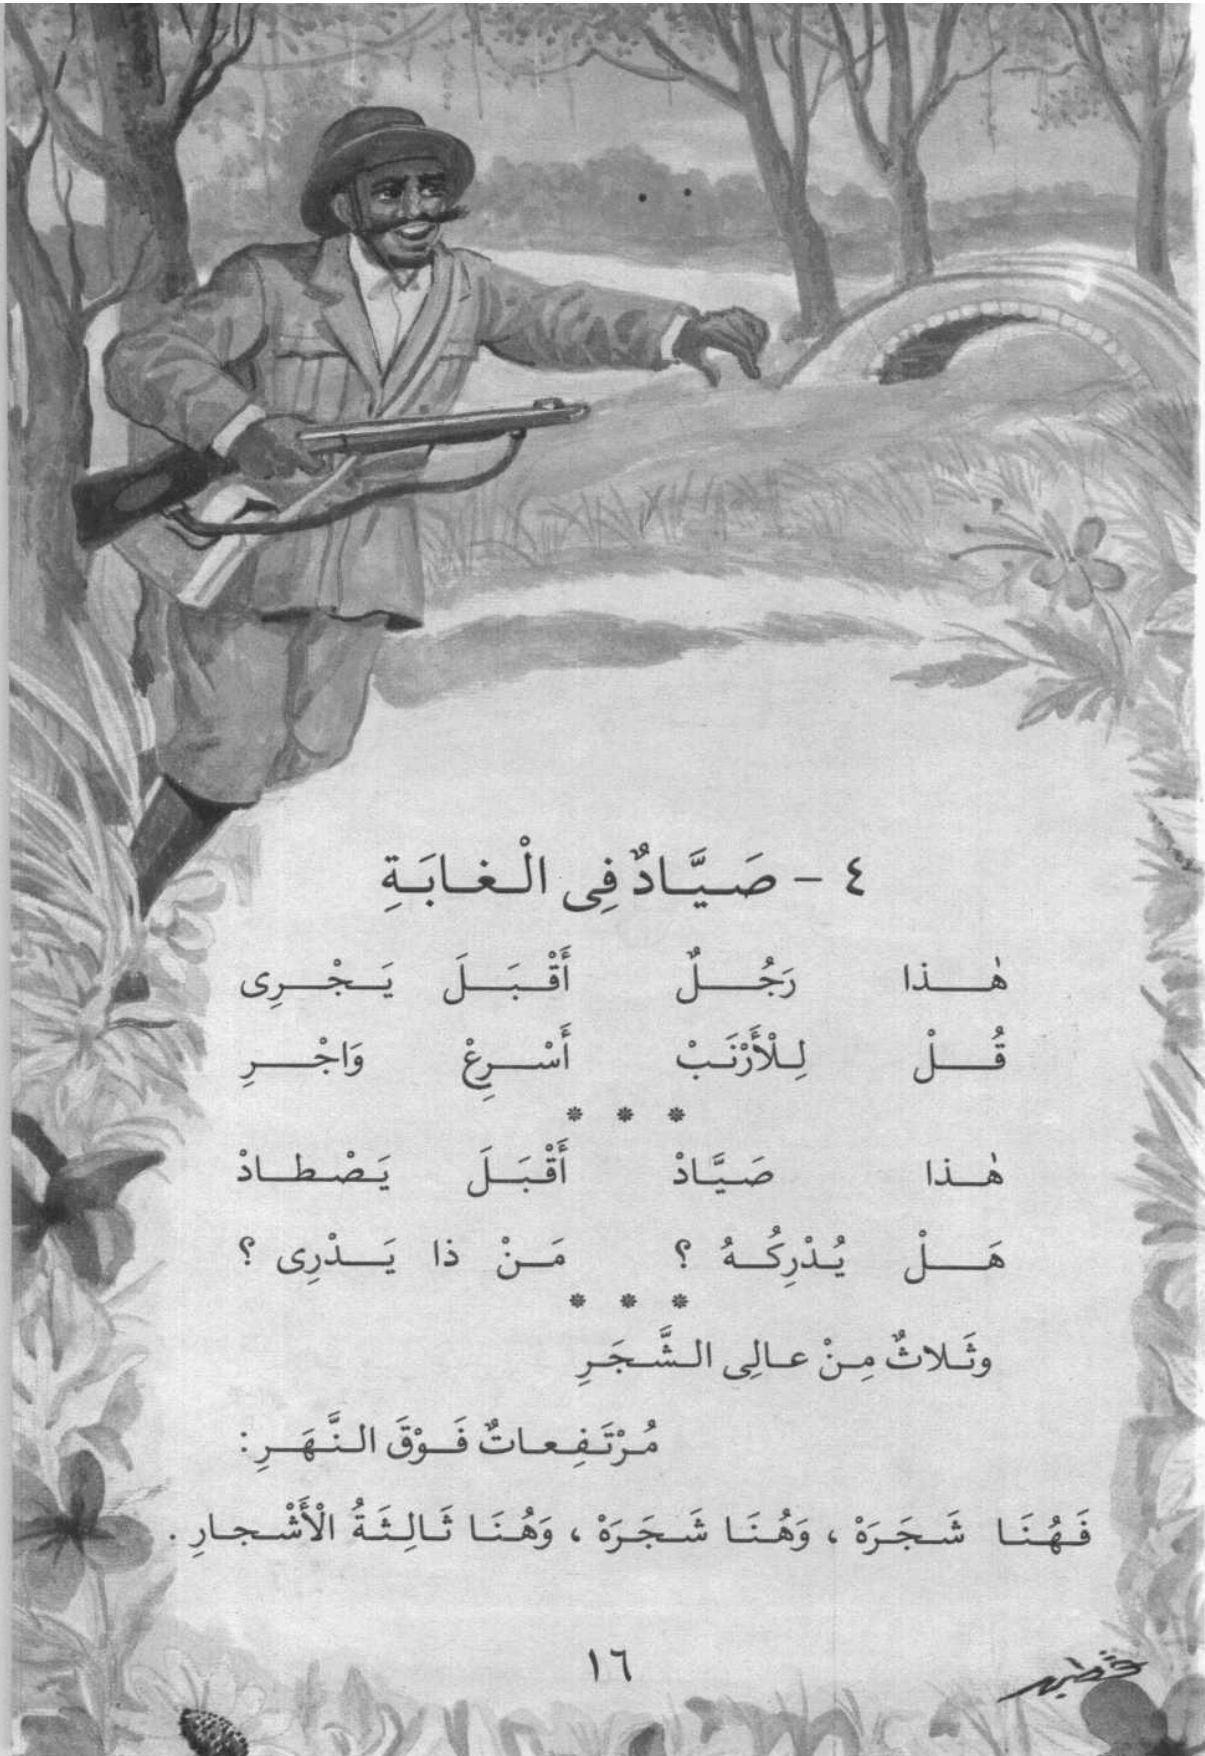 ٤ - صَيَّادٌ فِى الْغابَةِ
هٰذا رَجُلٌ أَقْبَلَ يَجْرِى
قُلْ لِلْأَرْنَبْ أَسْرِعْ وَاجْرِ
* * *
هٰذا صَيَّادْ أَقْبَلَ يَصْطادْ
هَلْ يُدْرِكُهُ ؟ مَنْ ذا يَدْرِى ؟
* * *
وثَلاثٌ مِنْ عالِى الشَّجَرِ
مُرْتَفِعاتٌ فَوْقَ النَّهَرِ :
فَهُنَا شَجَرَهْ ، وَهُنَا شَجَرَهْ ، وَهُنَا ثَالِثَةُ الْأَشْجارِ .
١٦